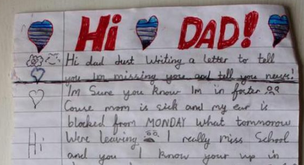 Hi DAD!
Hi dad Just Writing a letter to tell
you Im missing you and tell you news.
Im Sure you know Im in foster
Couse mom is sick and my ear is
blocked from MONDAY What tommorow
Hi Were leaving I really miss School
and you I know your up in